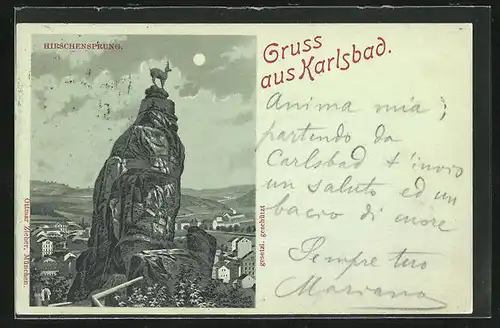 HIRSCHENSPRUNG.
Gruss
aus Karlsbad.
Anima mia;
partendo da
Carlsbad t'invio
un saluto ed un
bacio di cuore
Sempre tuo
Mariano
Ottmar Zieher, München.
gesetzl. geschützt